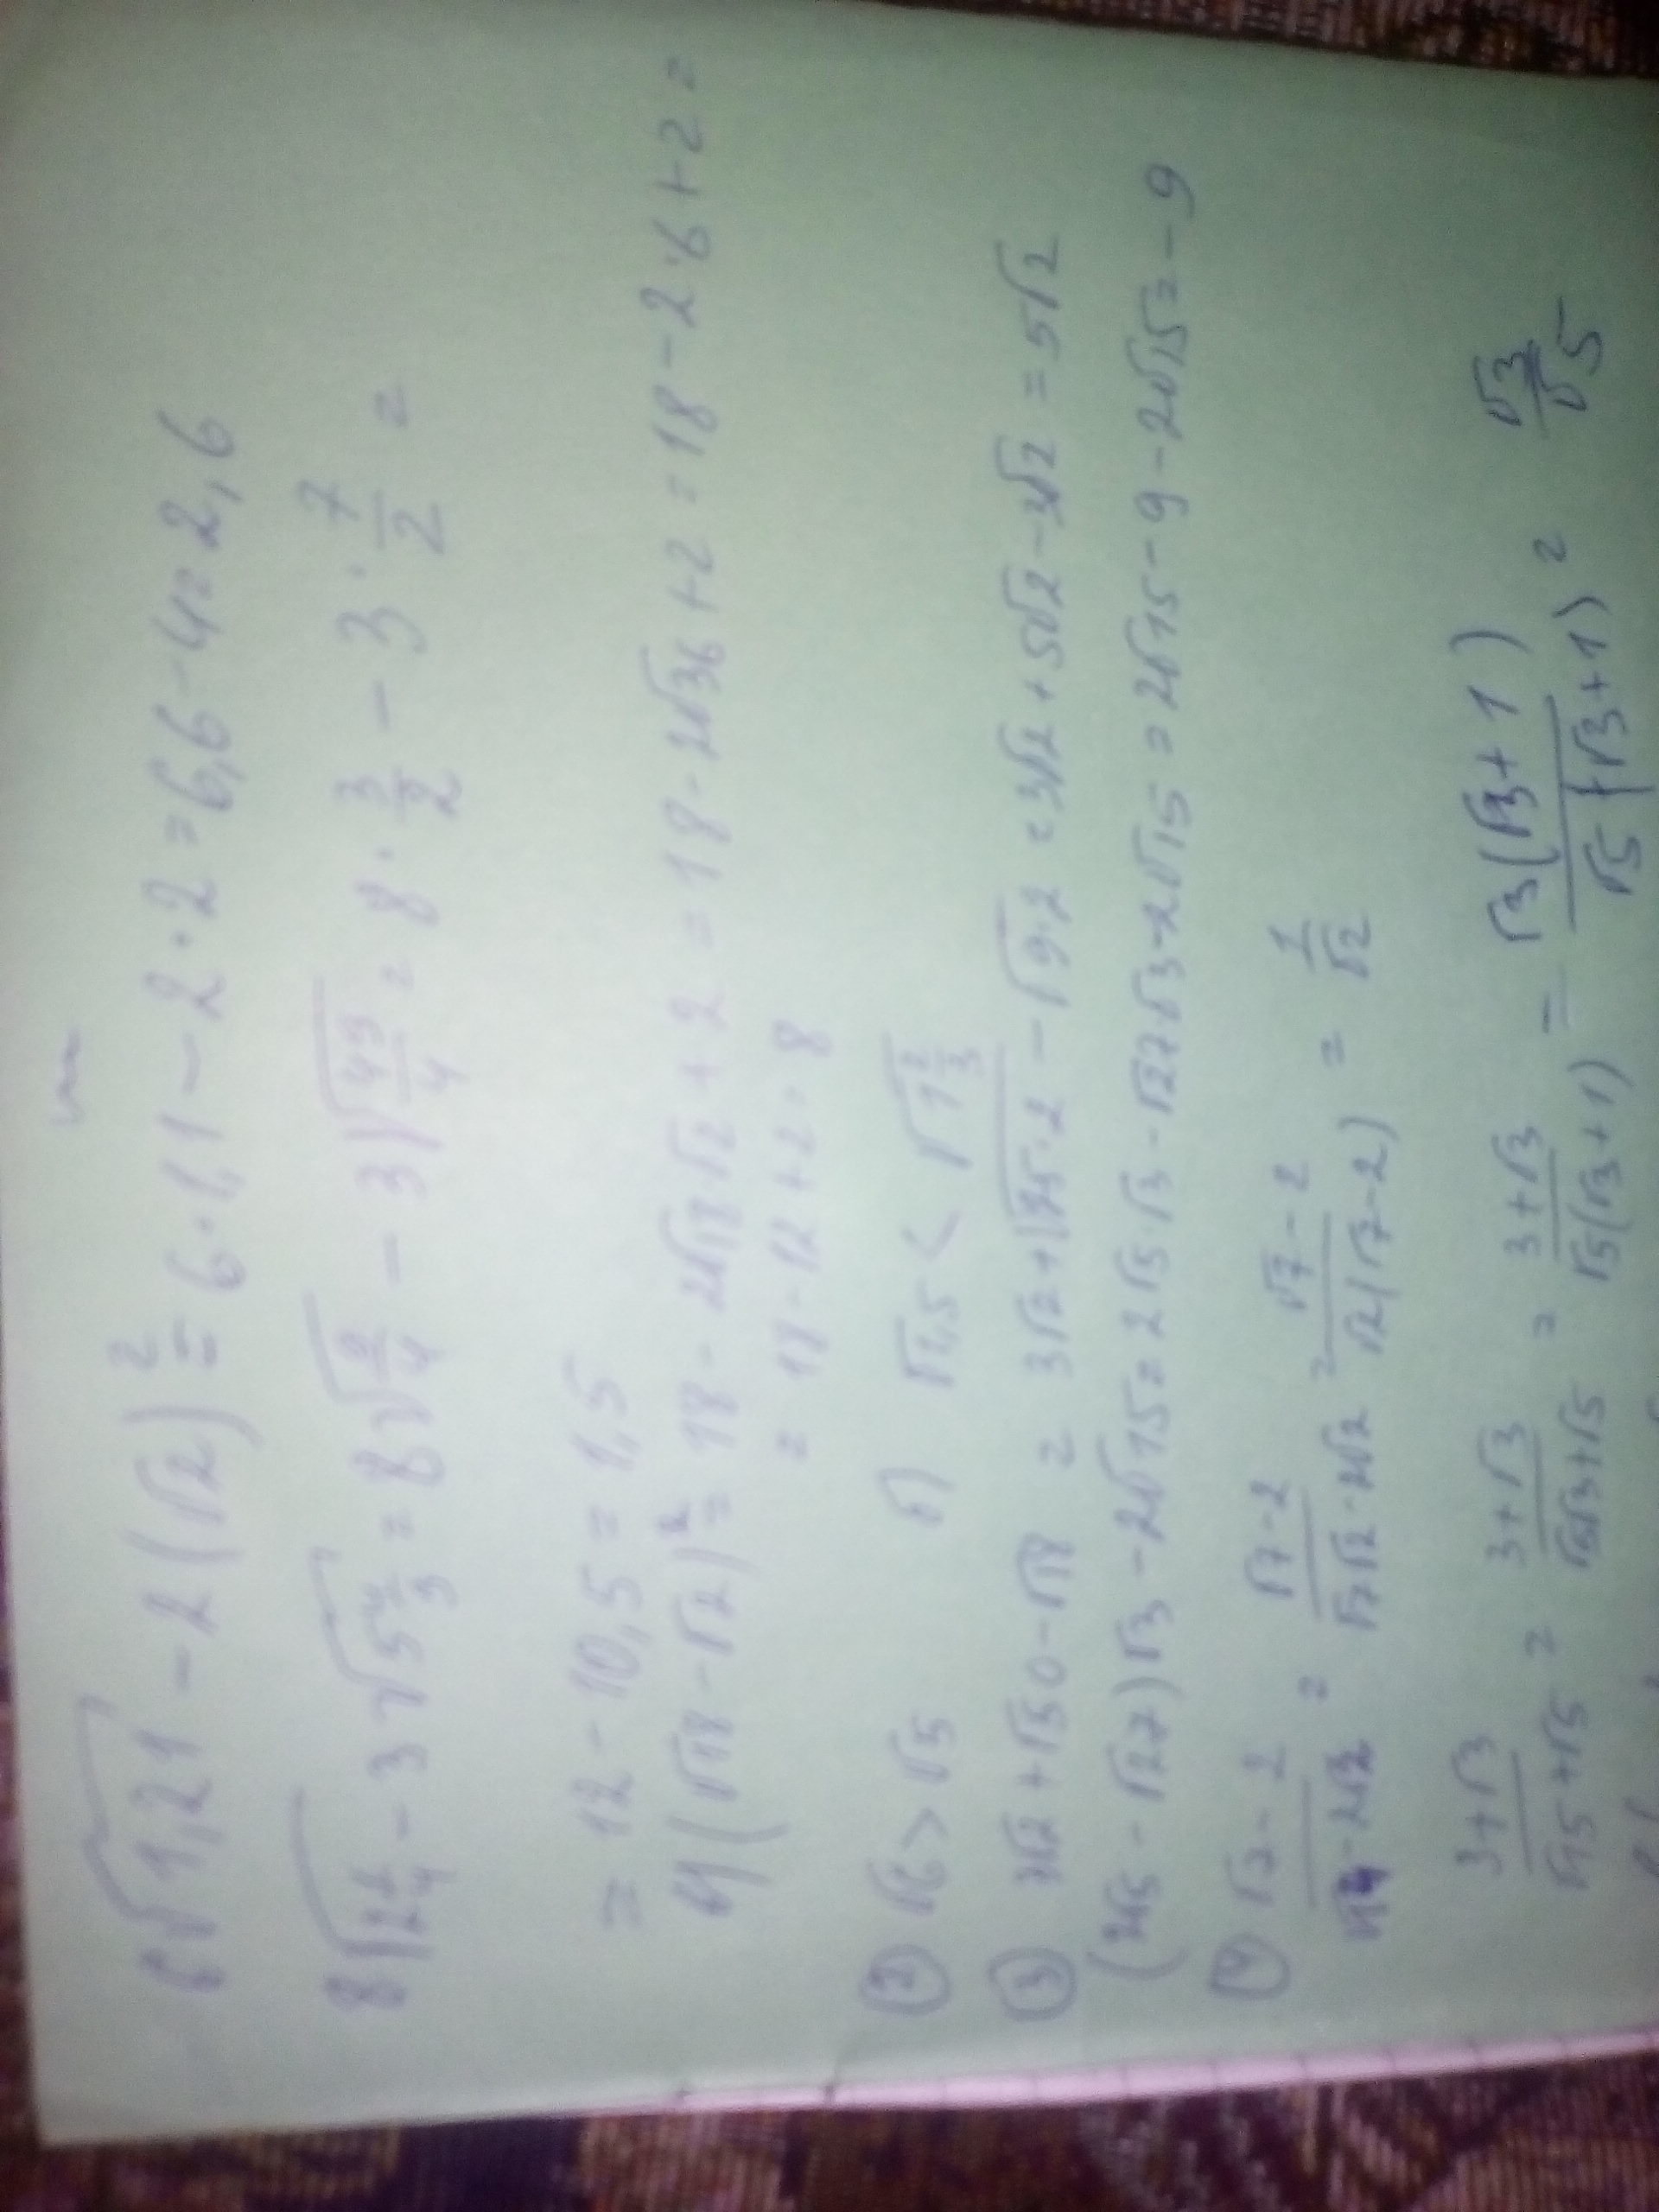 6√1,21 - 2(√2)² = 6·1,1 - 2·2 = 6,6 - 4 = 2,6
8√2 1/4 - 3√5 4/9 = 8√9/4 - 3√49/9 = 8·3/2 - 3·7/2 =
= 12 - 10,5 = 1,5
(√18 - √2)² = 18 - 2√18·√2 + 2 = 18 - 2√36 + 2 = 18 - 2·6 + 2 =
= 18 - 12 + 2 = 8
② √6 > √5
③ 3√2 + √50 - √18 = 3√2 + √25·2 - √9·2 = 3√2 + 5√2 - 3√2 = 5√2
(2√5 - √27)√3 - 2√15 = 2√5·√3 - √27·√3 - 2√15 = 2√15 - 9 - 2√15 = - 9
④ √7 - 2 / √14 - 2√2 = √7 - 2 / √7√2 - 2√2 = √7 - 2 / √2(√7 - 2) = 1/√2
3+√3 / √15+√5 = 3+√3 / √5√3+√5 = 3+√3 / √5(√3+1) = √3(√3+1) / √5(√3+1) = √3/√5